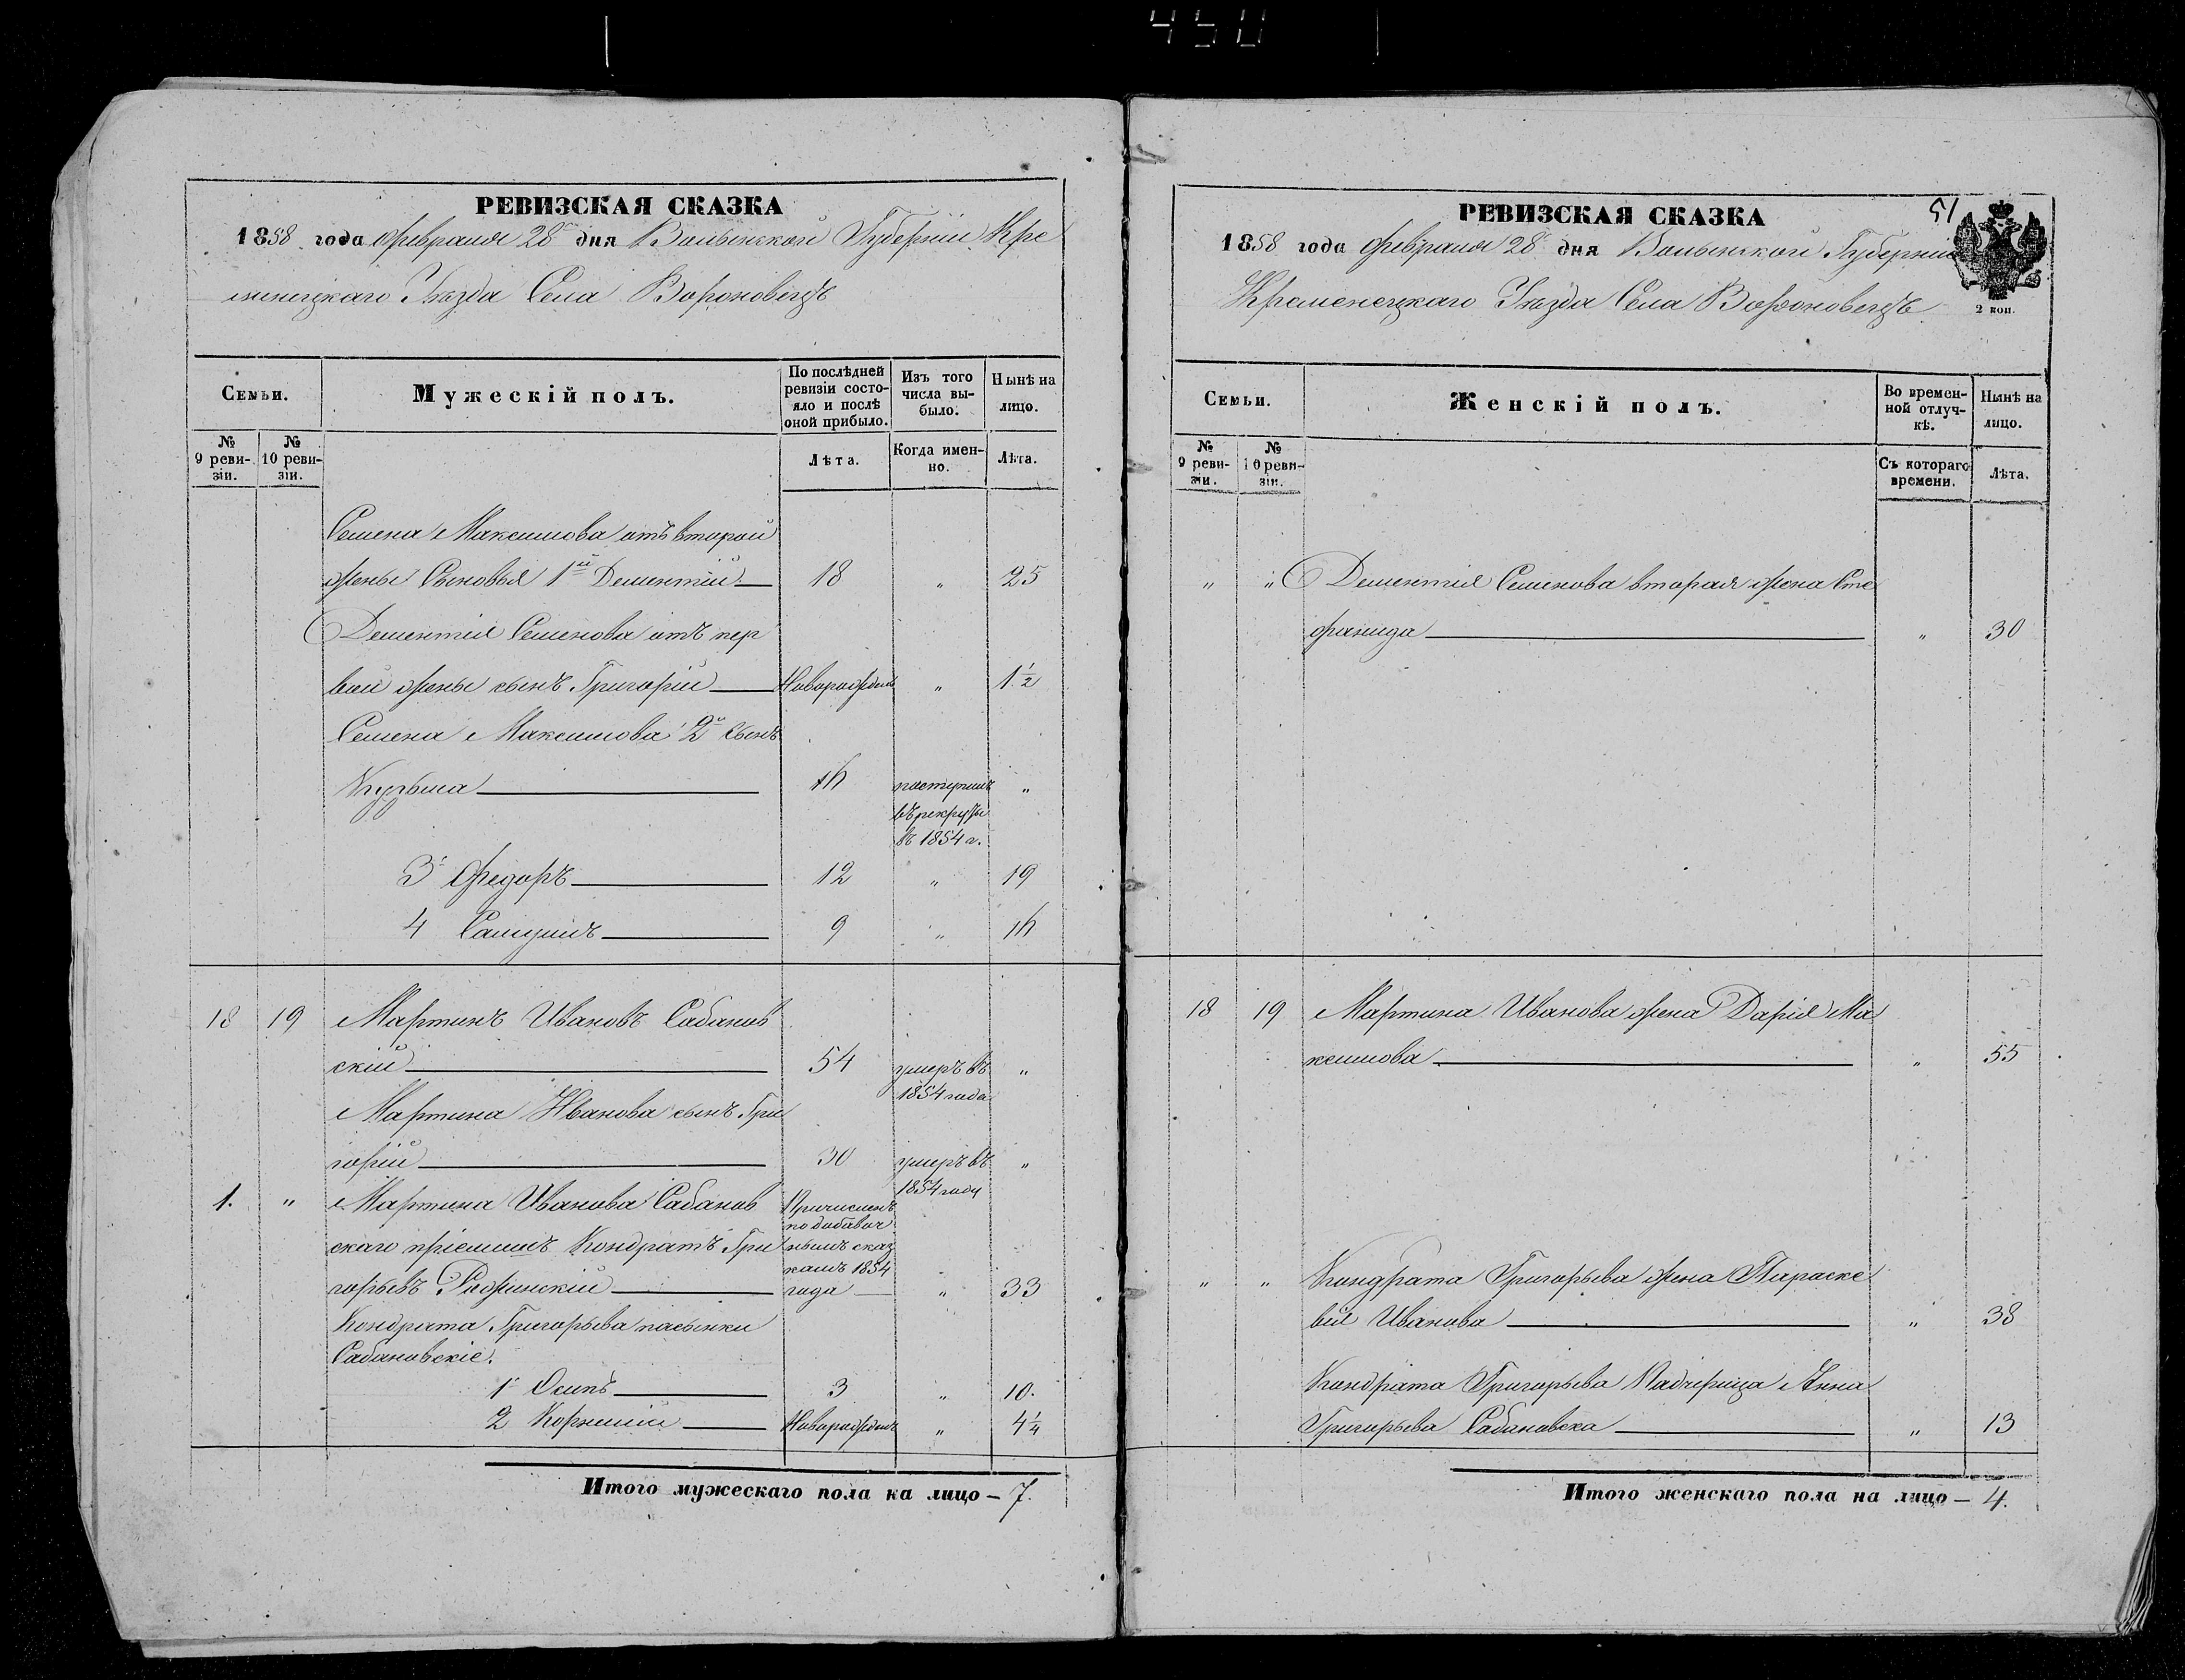 450
РЕВИЗСКАЯ СКАЗКА
1858 года февраля 28 дня Волынской Губерніи Кре
менецкаго Уѣзда Села Вороновецъ
Семьи.
Мужескій полъ.
По послѣдней ревизіи состояло и послѣ оной прибыло.
Изъ того числа выбыло.
Нынѣ на лицо.
№ 9 ревизіи.
№ 10 ревизіи.
Лѣта.
Когда именно.
Лѣта.
Семена Максимова отъ второй
жены Сыновья 1й Дементій 18 " 25
Дементія Семенова отъ пер
вой жены сынъ Григорій Новорожден " 1 1/2
Семена Максимова 2й Сынъ
Кузьма 16 "
въ рекруты
въ 1854 г.
3й Федоръ 12 " 19
4 Самуилъ 9 " 16
18 19 Мартинъ Ивановъ Сабанов
скій 54 умеръ въ "
1854 года
Мартина Иванова сынъ Гри
горій 30 умеръ въ "
1854 году
1. " Мартина Иванова Сабанов Причисленъ
по добавоч
скаго пріемышъ Кондратъ Гри нымъ сказ
камъ 1854
горьевъ года " 33
Кондрата Григорьева пасынки
Сабановскіе.
1й Осипъ 3 " 10.
2 Корнилій Новорожден " 4 1/4
Итого мужескаго пола на лицо — 7.
РЕВИЗСКАЯ СКАЗКА
51
1858 года февраля 28 дня Волынской Губерніи
Кременецкаго Уѣзда Села Вороновецъ
2 коп.
Семьи.
Женскій полъ.
Во временной отлучкѣ.
Нынѣ на лицо.
№ 9 ревизіи.
№ 10 ревизіи.
Съ котораго времени.
Лѣта.
" " Дементія Семенова вторая жена Сте
фанида " 30
18 19 Мартина Иванова жена Дарія Ма
ксимова " 55
" " Кондрата Григорьева жена Параске
вія Иванова " 38
Кондрата Григорьева Падчерица Анна
Григорьева Сабановска " 13
Итого женскаго пола на лицо — 4.